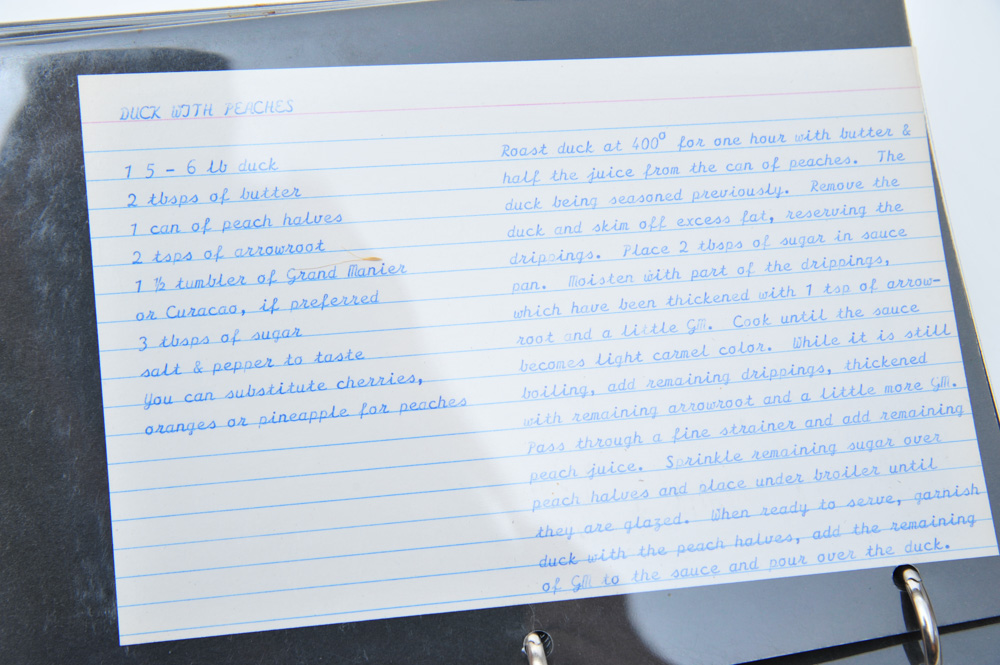 DUCK WITH PEACHES
1 5 - 6 lb duck
2 tbsps of butter
1 can of peach halves
2 tsps of arrowroot
1 ½ tumbler of Grand Manier
or Curacao, if preferred
3 tbsps of sugar
salt & pepper to taste
You can substitute cherries,
oranges or pineapple for peaches
Roast duck at 400° for one hour with butter &
half the juice from the can of peaches. The
duck being seasoned previously. Remove the
duck and skim off excess fat, reserving the
drippings. Place 2 tbsps of sugar in sauce
pan. Moisten with part of the drippings,
which have been thickened with 1 tsp of arrow-
root and a little GM. Cook until the sauce
becomes light carmel color. While it is still
boiling, add remaining drippings, thickened
with remaining arrowroot and a little more GM.
Pass through a fine strainer and add remaining
peach juice. Sprinkle remaining sugar over
peach halves and place under broiler until
they are glazed. When ready to serve, garnish
duck with the peach halves, add the remaining
of GM to the sauce and pour over the duck.